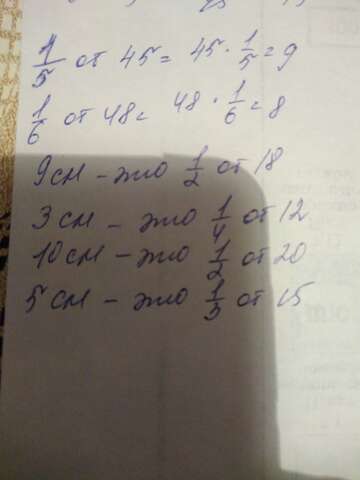 1/5 от 45 = 45 · 1/5 = 9
1/6 от 48 = 48 · 1/6 = 8
9см – это 1/2 от 18
3см – это 1/4 от 12
10см – это 1/2 от 20
5см – это 1/3 от 15